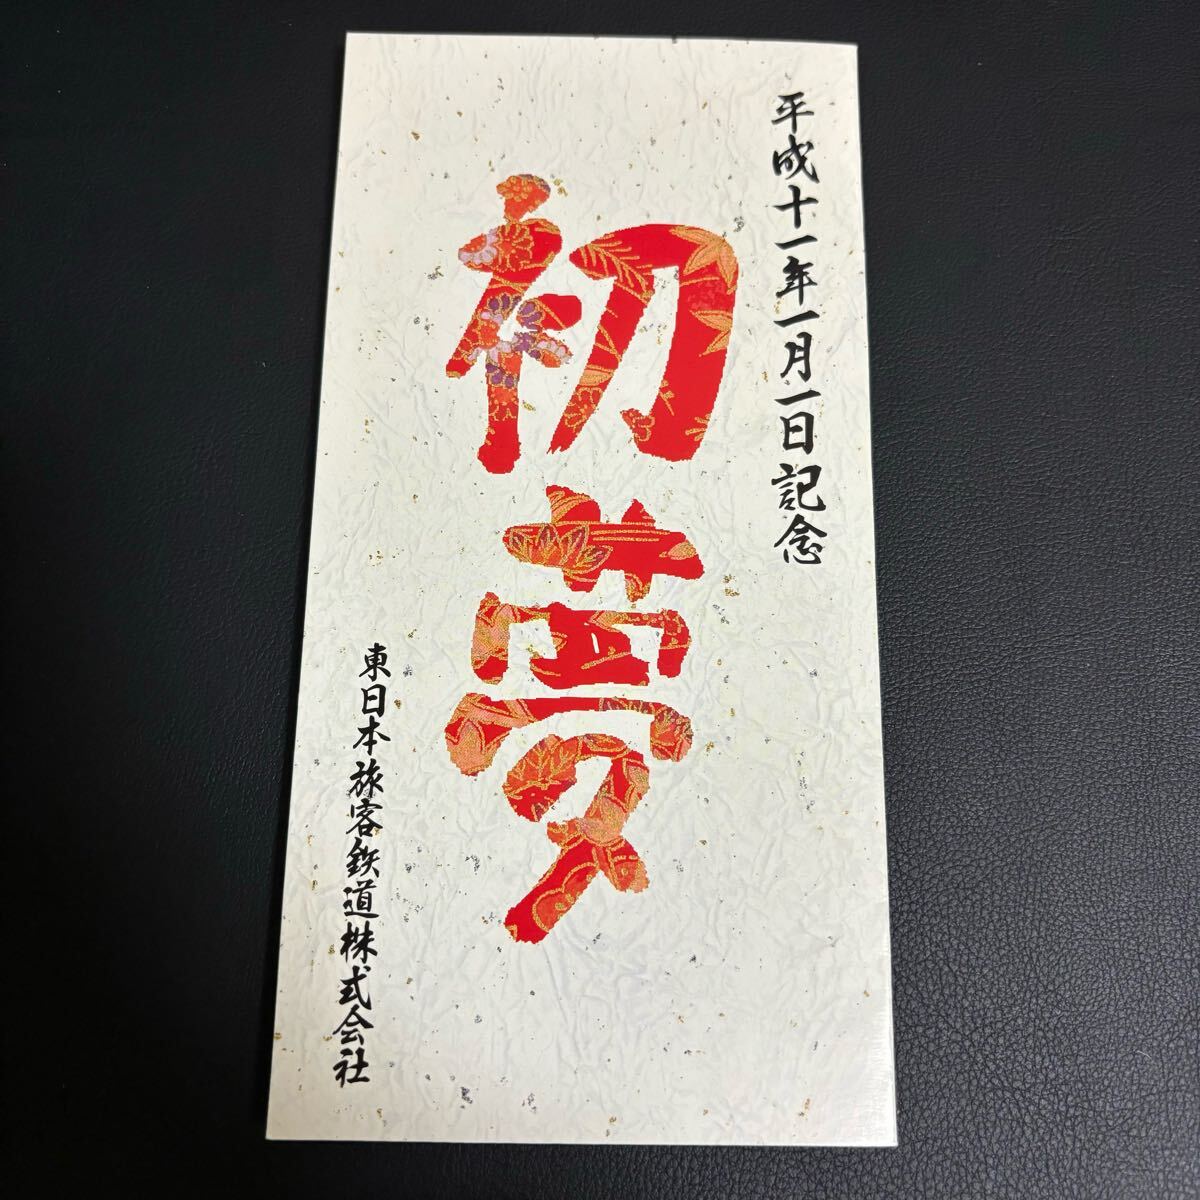 平成十一年一月一日記念
初夢
東日本旅客鉄道株式会社